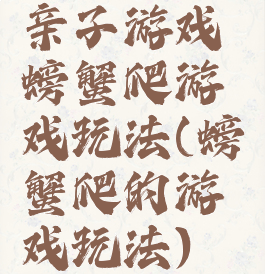 亲子游戏
螃蟹爬游
戏玩法(螃
蟹爬的游
戏玩法)